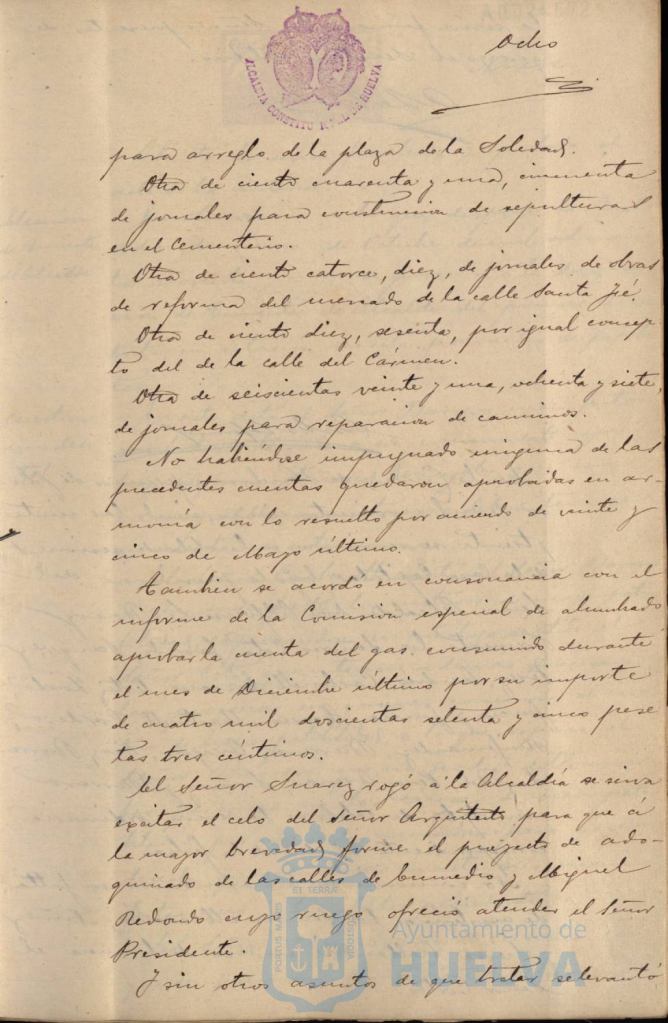 Ocho
ALCALDIA CONSTITUNAL DE HUELVA
para arreglo de la plaza de la Soledad.
Otra de ciento cuarenta y una, cincuenta
de jornales para construccion de sepulturas
en el Cementerio.
Otra de ciento catorce, diez, de jornales de obras
de reforma del mercado de la calle Santa Fé.
Otra de ciento diez, sesenta, por igual concep
to del de la calle del Cármen.
Otra de seiscientas veinte y una, ochenta y siete,
de jornales para reparacion de caminos.
No habiéndose impugnado ninguna de las
precedentes cuentas quedaron aprobadas en ar-
monía con lo resuelto por acuerdo de veinte y
cinco de Mayo último.
Tambien se acordó en consonancia con el
informe de la Comision especial de alumbrado
aprobar la cuenta del gas consumido durante
el mes de Diciembre último por su importe
de cuatro mil doscientas setenta y cinco pese
tas tres céntimos.
El Señor Suarez rogó á la Alcaldía se sirva
excitar el celo del Señor Arquitecto para que á
la mayor brevedad forme el proyecto de ado-
quinado de las calles de Enmedio y Miguel
Redondo cuyo ruego ofreció atender el Señor
Presidente.
Y sin otros asuntos de que tratar se levantó
PORTUS MARIS ET TERRÆ CUSTODIA
Ayuntamiento de
HUELVA